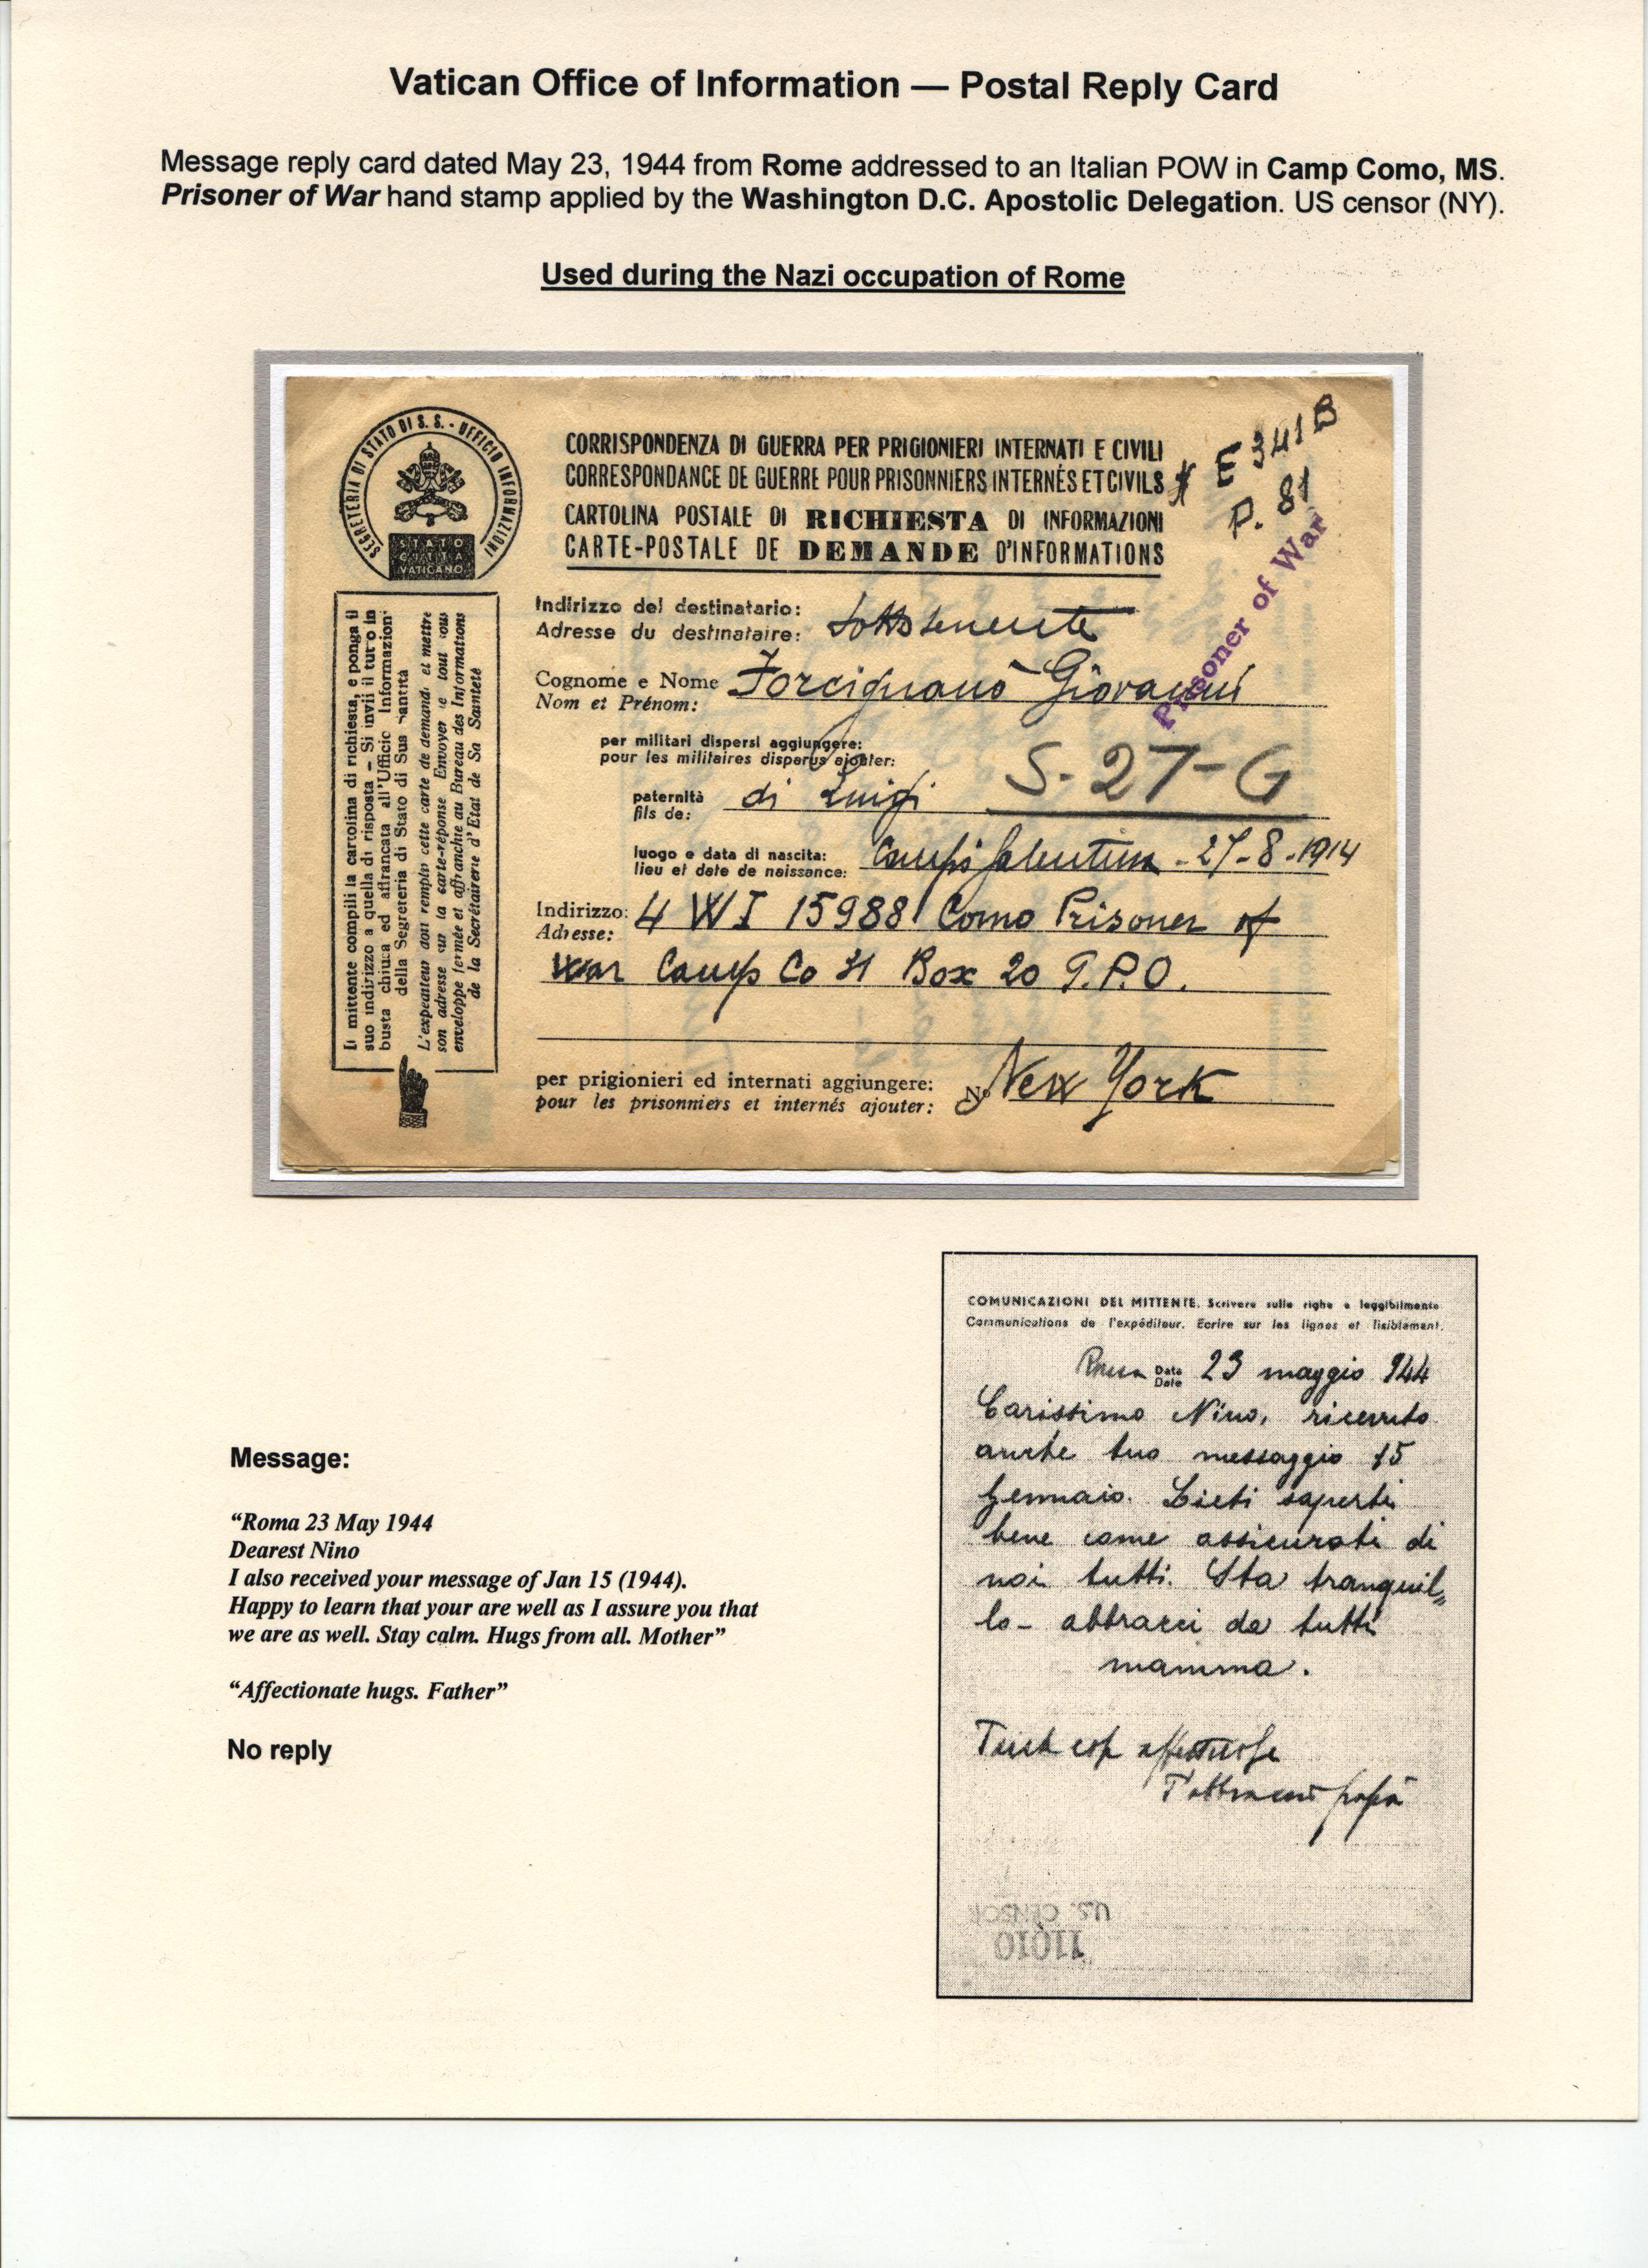 Vatican Office of Information — Postal Reply Card
Message reply card dated May 23, 1944 from Rome addressed to an Italian POW in Camp Como, MS.
Prisoner of War hand stamp applied by the Washington D.C. Apostolic Delegation. US censor (NY).
Used during the Nazi occupation of Rome
SEGRETERIA DI STATO DI S. S. - UFFICIO INFORMAZIONI
STATO
CITTA DEL
VATICANO
CORRISPONDENZA DI GUERRA PER PRIGIONIERI INTERNATI E CIVILI
CORRESPONDANCE DE GUERRE POUR PRISONNIERS INTERNÉS ET CIVILS
CARTOLINA POSTALE DI RICHIESTA DI INFORMAZIONI
CARTE-POSTALE DE DEMANDE D'INFORMATIONS
E 341B
P. 81
Prisoner of War
Il mittente compili la cartolina di richiesta, e ponga il
suo indirizzo a quella di risposta - Si invii il tutto in
busta chiusa ed affrancata all'Ufficio Informazioni
della Segreteria di Stato di Sua Santità
L'expediteur doit remplir cette carte de demande et mettre
son adresse sur la carte-réponse Envoyer le tout sous
enveloppe fermée et affranchie au Bureau des Informations
de la Secrétairerie d'Etat de Sa Sainteté
Indirizzo del destinatario:
Adresse du destinataire: Sottotenente
Cognome e Nome
Nom et Prénom: Forcignanò Giovanni
per militari dispersi aggiungere:
pour les militaires disparus ajouter:
S-27-G
paternità
fils de: di Luigi
luogo e data di nascita:
lieu et date de naissance: Campi Salentina - 27-8-1914
Indirizzo:
Adresse: 4 WI 15988 Como Prisoner of
War Camp Co 31 Box 20 G.P.O.
per prigionieri ed internati aggiungere:
pour les prisonniers et internés ajouter: No New York
COMUNICAZIONI DEL MITTENTE. Scrivere sulle righe e leggibilmente
Communications de l'expéditeur. Ecrire sur les lignes et lisiblement.
Roma Data Date 23 maggio 944
Carissimo Nino, ricevuto
anche tuo messaggio 15
gennaio. Lieti saperti
bene come assicurati di
noi tutti. Sta tranquil=
lo - abbracci da tutti
mamma.
affettuose
T'abbraccio papà
U.S. CENSOR
11010
Message:
“Roma 23 May 1944
Dearest Nino
I also received your message of Jan 15 (1944).
Happy to learn that your are well as I assure you that
we are as well. Stay calm. Hugs from all. Mother”
“Affectionate hugs. Father”
No reply